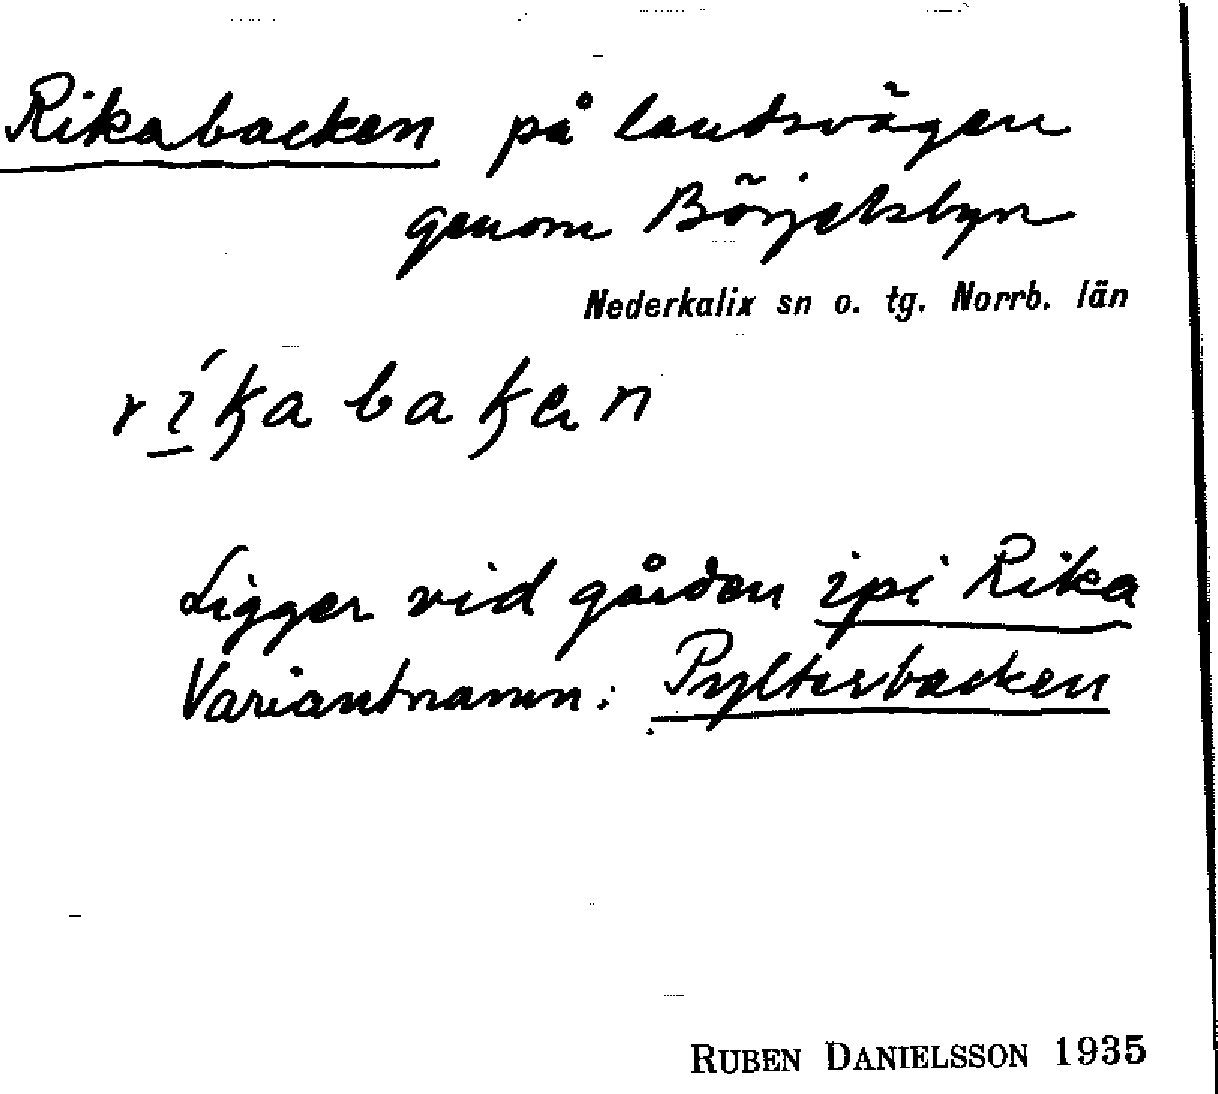 Rikabacken på landsvägen
genom Börjelsbyn
Nederkalix sn o. tg. Norrb. län
Ligger vid gården ipi Rika
Variantnamn: Pyltersbacken
RUBEN DANIELSSON 1935